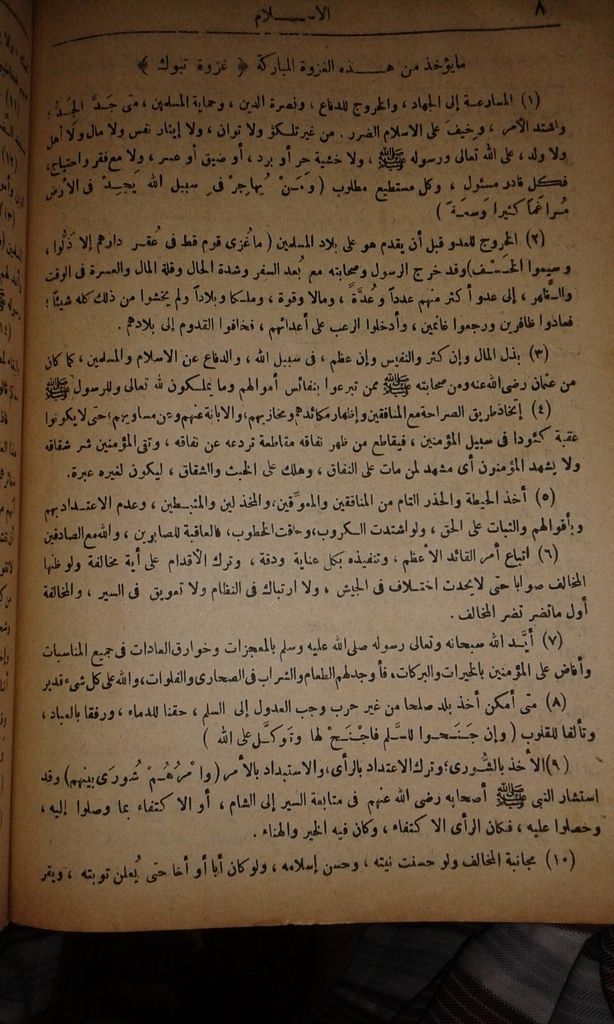 ٨
الإســلام
مايؤخذ من هـذه الغزوة المباركة ﴿ غزوة تبوك ﴾
(١) المسارعة إلى الجهاد ، والخروج للدفاع ، ونصرة الدين ، وحماية المسلمين ، متى جَدَّ الجِدّ ؛
واشتد الأمر ، وخيف على الاسلام الضرر . من غير تلكؤ ولا توان ، ولا إيثار نفس ولا مال ولا أهل
ولا ولد ، على الله تعالى ورسوله ﷺ ، ولا خشية حر أو برد ، أو ضيق أو عسر ، ولا مع فقر واحتياج ،
فكل قادر مسئول ، وكل مستطيع مطلوب ( وَمَـنْ يُهاجِرْ في سبيل الله يَجِدْ في الأرض
مُراغَماً كثيراً وَسعَةً )
(٢) الخروج للعدو قبل أن يقدم هو على بلاد المسلمين ( ما غُزى قوم قط فى عُقر دارهم إلا ذَلُّوا ،
وسيموا الخَسْف) وقد خرج الرسول وصحابته مع بُعد السفر وشدة الحال وقلة المال والعسرة فى الوقت
والـظهر ، إلى عدو أكثر منهم عدداً وعُدَّةً ، ومالا وقوة ، وملكا وبلاداً ولم يخشوا من ذلك كله شيئاً ؛
فعادوا ظافرين ورجعوا غانمين ، وأدخلوا الرعب على أعدائهم ، فخافوا القدوم إلى بلادهم .
(٣) بذل المال وإن كثر والنفيس وإن عظم ، فى سبيل الله ، والدفاع عن الاسلام والمسلمين ، كما كان
من عثمان رضى الله عنه ومن صحابته ﷺ ممن تبرعوا بنفائس أموالهم وما يملكون لله تعالى وللرسول ﷺ
(٤) إتخاذ طريق الصراحة مع المنافقين وإظهار مكائدهم ومخازيهم ، والابانة عنهم وعن مساويهم ؛ حتى لا يكونوا
عقبة كئودا فى سبيل المؤمنين ، فيقاطع من ظهر نفاقه مقاطعة تردعه عن نفاقه ، وتقى المؤمنين شر شقاقه
ولا يشهد المؤمنون أى مشهد لمن مات على النفاق ، وهلك على الخبث والشقاق ، ليكون لغيره عبرة .
(٥) أخذ الحيطة والحذر التام من المنافقين والمعوِّقين ، والمخذلين والمثبطين ، وعدم الاعتداد بهم
وبأقوالهم والثبات على الحق ، ولو اشتدت الكروب ، وحاقت الخطوب ، فالعاقبة للصابرين ، والله مع الصادقين
(٦) اتباع أمر القائد الأعظم ، وتنفيذه بكل عناية ودقة ، وترك الأقدام على أية مخالفة ولو ظنها
المخالف صوابا حتى لا يحدث اختلاف فى الجيش ، ولا ارتباك فى النظام ولا تعويق فى السير ، والمخالفة
أول ماتضر تضر المخالف .
(٧) أيَّد الله سبحانه وتعالى رسوله صلى الله عليه وسلم بالمعجزات وخوارق العادات فى جميع المناسبات
وأفاض على المؤمنين بالخيرات والبركات ، فأوجد لهم الطعام والشراب فى الصحارى والفلوات ، والله على كل شىء قدير
(٨) متى أمكن أخذ بلد صلحا من غير حرب وجب العدول إلى السلم ، حقنا للدماء ، ورفقا بالعباد ،
وتألفا للقلوب ( وإن جَنَحـوا للسَّلمِ فاجْنَحْ لها وتوكَّل على الله )
(٩) الأخذ بالشُّورى ؛ وترك الاعتداد بالرأى ، والاستبداد بالأمر ( وأمْرُهُمْ شُورَى بينهم ) وقد
استشار النبى ﷺ أصحابه رضى الله عنهم فى متابعة السير إلى الشام ، أو الاكتفاء بما وصلوا إليه ،
وحصلوا عليه ، فكان الرأى الاكتفاء ، وكان فيه الخير والهناء .
(١٠) مجانبة المخالف ولو حسنت نيته ، وحسن إسلامه ، ولو كان أبا أو أخا حتى يُعلن توبته ، ويقر